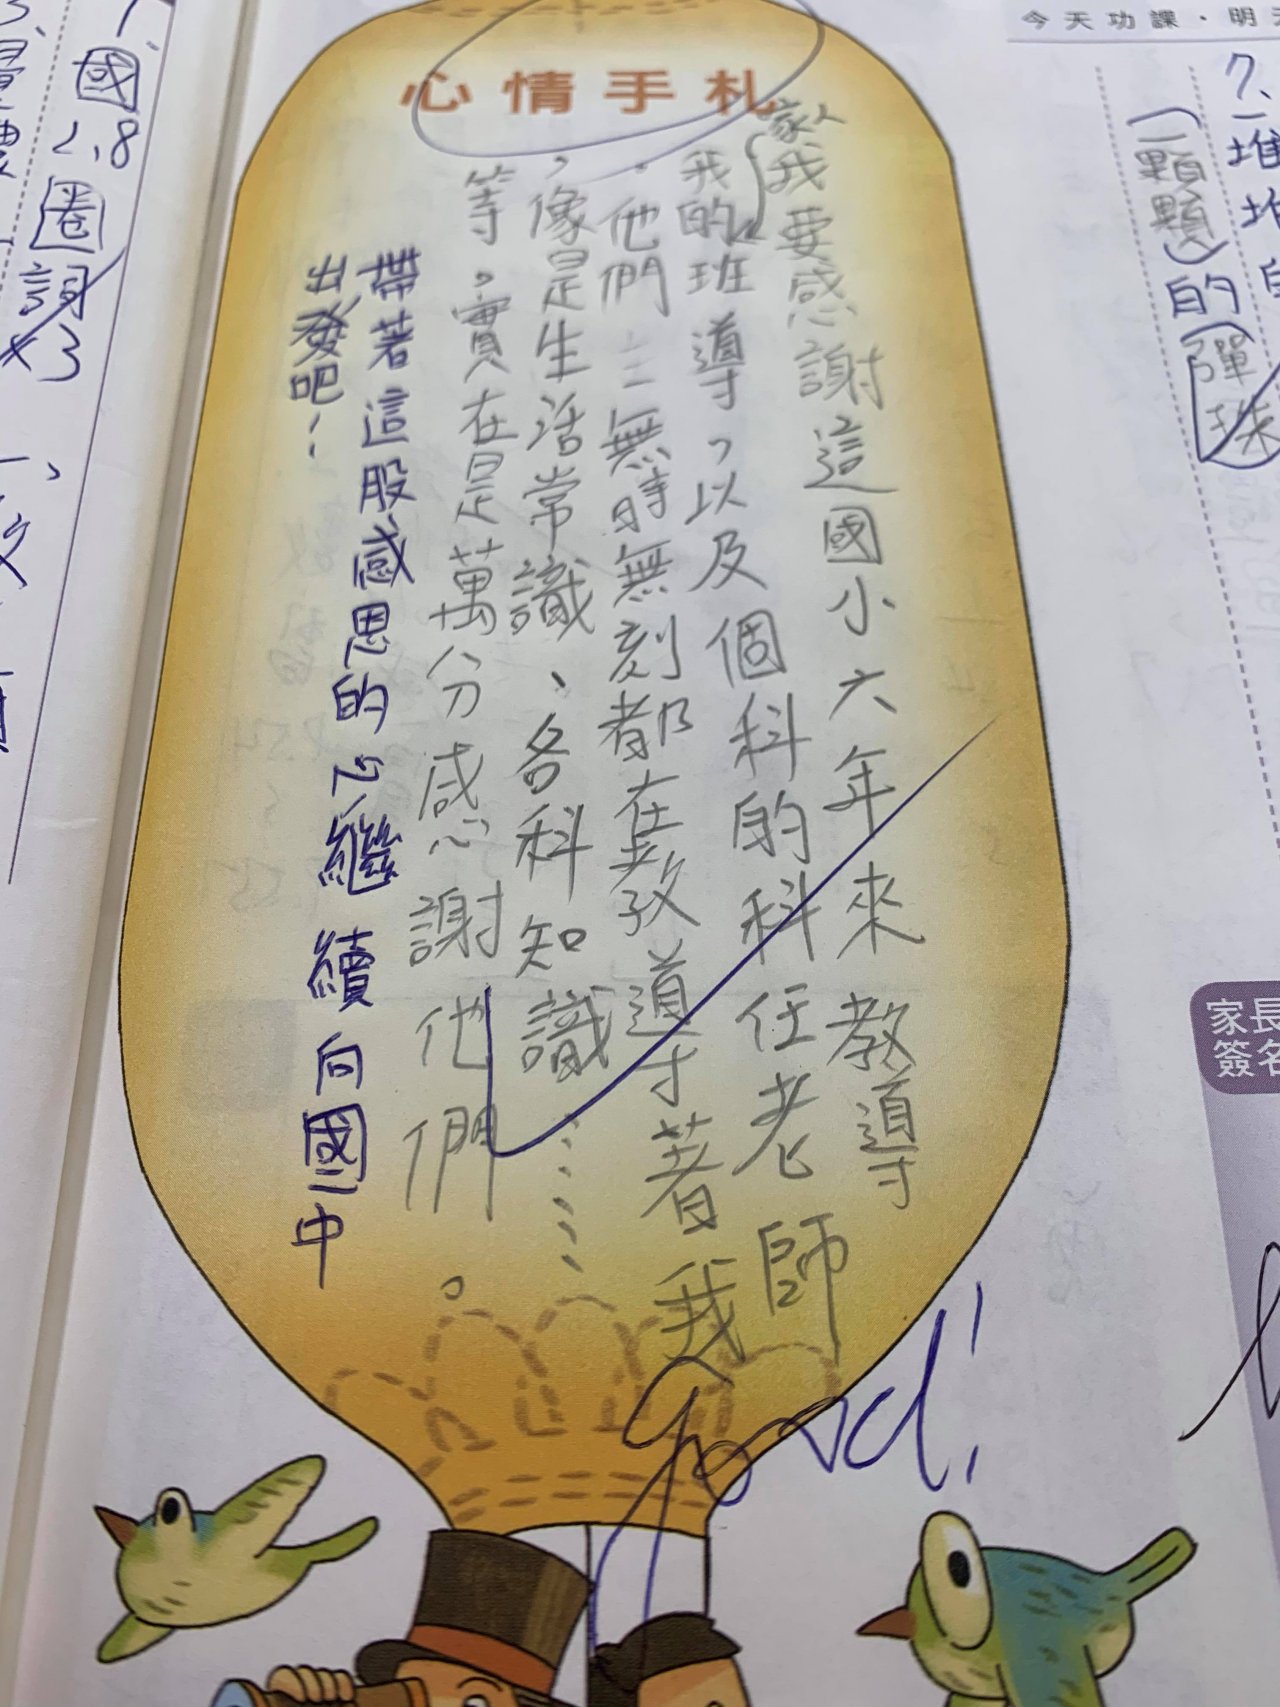 今天功課．明
心情手札
家人
我要感謝這國小六年來教導
我的班導，以及個科的科任老師
。他們無時無刻都在教導著我
，像是生活常識、各科知識……
等。實在是萬分感謝他們。
帶著這股感恩的心繼續向國中
出發吧！
Good!
7、一堆堆
(一顆顆)的彈珠
家長
簽名
國
2、8
圈詞x3